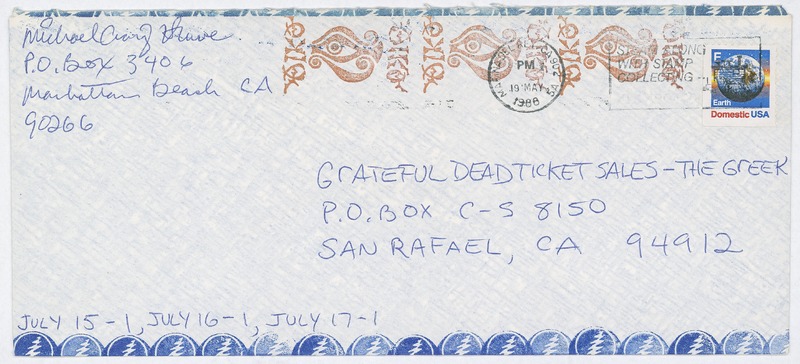 Michael Craig
P.O. Box 3406
Manhattan Beach CA
90266
PM
19 MAY
1988
WITH STAMP
COLLECTING
E
Earth
Domestic USA
GRATEFUL DEAD TICKET SALES – THE GREEK
P.O. BOX C-S 8150
SAN RAFAEL, CA 94912
JULY 15 - 1, JULY 16 - 1, JULY 17 - 1